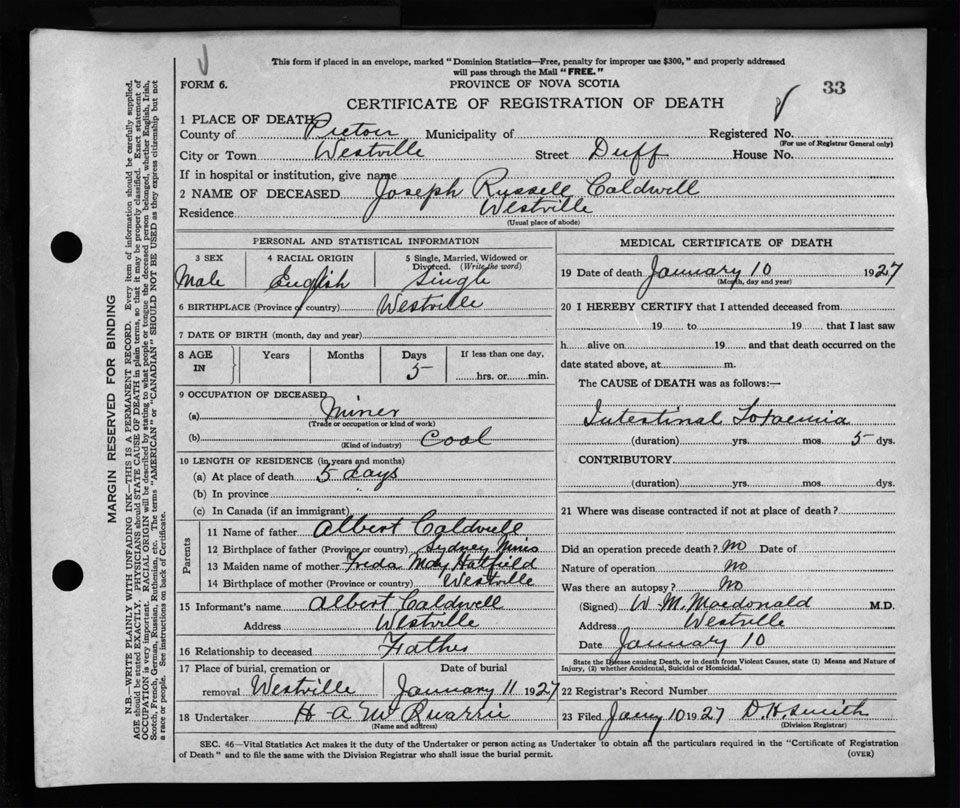 This form if placed in an envelope, marked "Dominion Statistics—Free, penalty for improper use $300," and properly addressed
will pass through the Mail "FREE."
FORM 6.
PROVINCE OF NOVA SCOTIA
33
CERTIFICATE OF REGISTRATION OF DEATH
1 PLACE OF DEATH
County of Pictou Municipality of Registered No.
(For use of Registrar General only)
City or Town Westville Street Duff House No.
If in hospital or institution, give name
2 NAME OF DECEASED Joseph Russell Caldwell
Residence Westville
(Usual place of abode)
PERSONAL AND STATISTICAL INFORMATION
3 SEX 4 RACIAL ORIGIN 5 Single, Married, Widowed or
Divorced. (Write the word)
Male English Single
6 BIRTHPLACE (Province or country) Westville
7 DATE OF BIRTH (month, day and year)
8 AGE IN Years Months Days If less than one day,
5 hrs. or min.
9 OCCUPATION OF DECEASED
(a) Miner
(Trade or occupation or kind of work)
(b) Coal
(Kind of industry)
10 LENGTH OF RESIDENCE (in years and months)
(a) At place of death 5 days
(b) In province "
(c) In Canada (if an immigrant)
Parents
11 Name of father Albert Caldwell
12 Birthplace of father (Province or country) Sydney Mines
13 Maiden name of mother Freda May Hatfield
14 Birthplace of mother (Province or country) Westville
15 Informant's name Albert Caldwell
Address Westville
16 Relationship to deceased Father
17 Place of burial, cremation or Date of burial
removal Westville January 11 1927
18 Undertaker H A McQuarrie
(Name and address)
MEDICAL CERTIFICATE OF DEATH
19 Date of death January 10 1927
(Month, day and year)
20 I HEREBY CERTIFY that I attended deceased from
19 to 19 that I last saw
h alive on 19 and that death occurred on the
date stated above, at m.
The CAUSE of DEATH was as follows:—
Intestinal Toxaemia
(duration) yrs. mos. 5 dys.
CONTRIBUTORY
(duration) yrs. mos. dys.
21 Where was disease contracted if not at place of death?
Did an operation precede death? No Date of
Nature of operation No
Was there an autopsy? No
(Signed) W. M. Macdonald M.D.
Address Westville
Date January 10
State the Disease causing Death, or in death from Violent Causes, state (1) Means and Nature of
Injury, (2) whether Accidental, Suicidal or Homicidal.
22 Registrar's Record Number
23 Filed Jany 10 1927 D. H. Smith
(Division Registrar)
SEC. 46—Vital Statistics Act makes it the duty of the Undertaker or person acting as Undertaker to obtain all the particulars required in the "Certificate of Registration
of Death" and to file the same with the Division Registrar who shall issue the burial permit. (OVER)
MARGIN RESERVED FOR BINDING
N.B.—WRITE PLAINLY WITH UNFADING INK—THIS IS A PERMANENT RECORD. Every item of information should be carefully supplied.
AGE should be stated EXACTLY. PHYSICIANS should STATE CAUSE OF DEATH in plain terms, so that it may be properly classified. Exact statement of
OCCUPATION is very important. RACIAL ORIGIN will be described by stating to what people or tongue the deceased person belonged, whether English, Irish,
Scotch, French, German, Russian, Ruthenian, etc. The terms "AMERICAN" or "CANADIAN" SHOULD NOT BE USED as they express citizenship but not
a race or people. See instructions on back of Certificate.